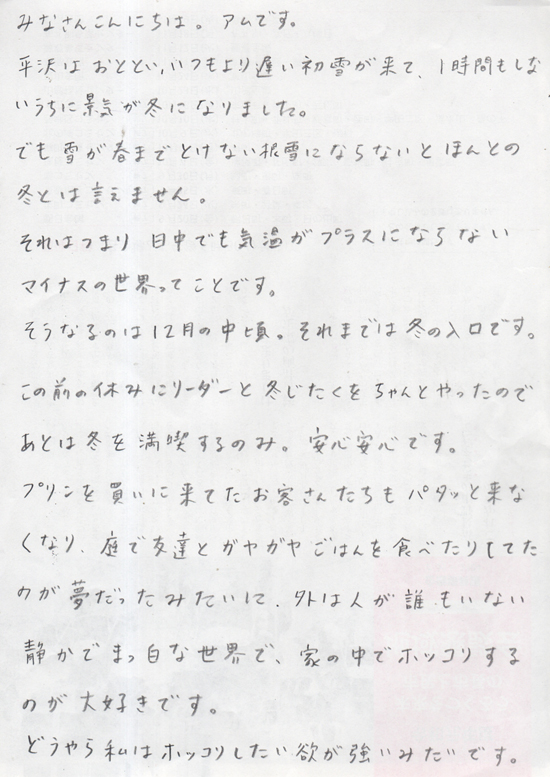 みなさんこんにちは。アムです。
平沢はおととい、いつもより遅い初雪が来て、1時間もしな
いうちに景気が冬になりました。
でも雪が春までとけない根雪にならないとほんとの
冬とは言えません。
それはつまり日中でも気温がプラスにならない
マイナスの世界ってことです。
そうなるのは12月の中頃。それまでは冬の入口です。
この前の休みにリーダーと冬じたくをちゃんとやったので
あとは冬を満喫するのみ。安心安心です。
プリンを買いに来てたお客さんたちもパタッと来な
くなり、庭で友達とガヤガヤごはんを食べたりしてた
のが夢だったみたいに、外は人が誰もいない
静かでまっ白な世界で、家の中でホッコリする
のが大好きです。
どうやら私はホッコリしたい欲が強いみたいです。